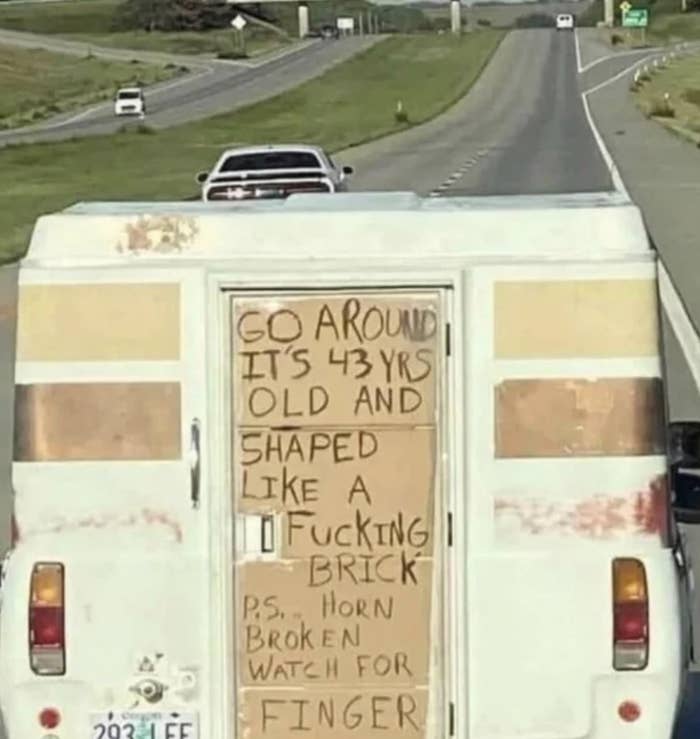 GO AROUND
IT'S 43 YRS
OLD AND
SHAPED
LIKE A
FUCKING
BRICK
P.S.. HORN
BROKEN
WATCH FOR
FINGER
293 LFF